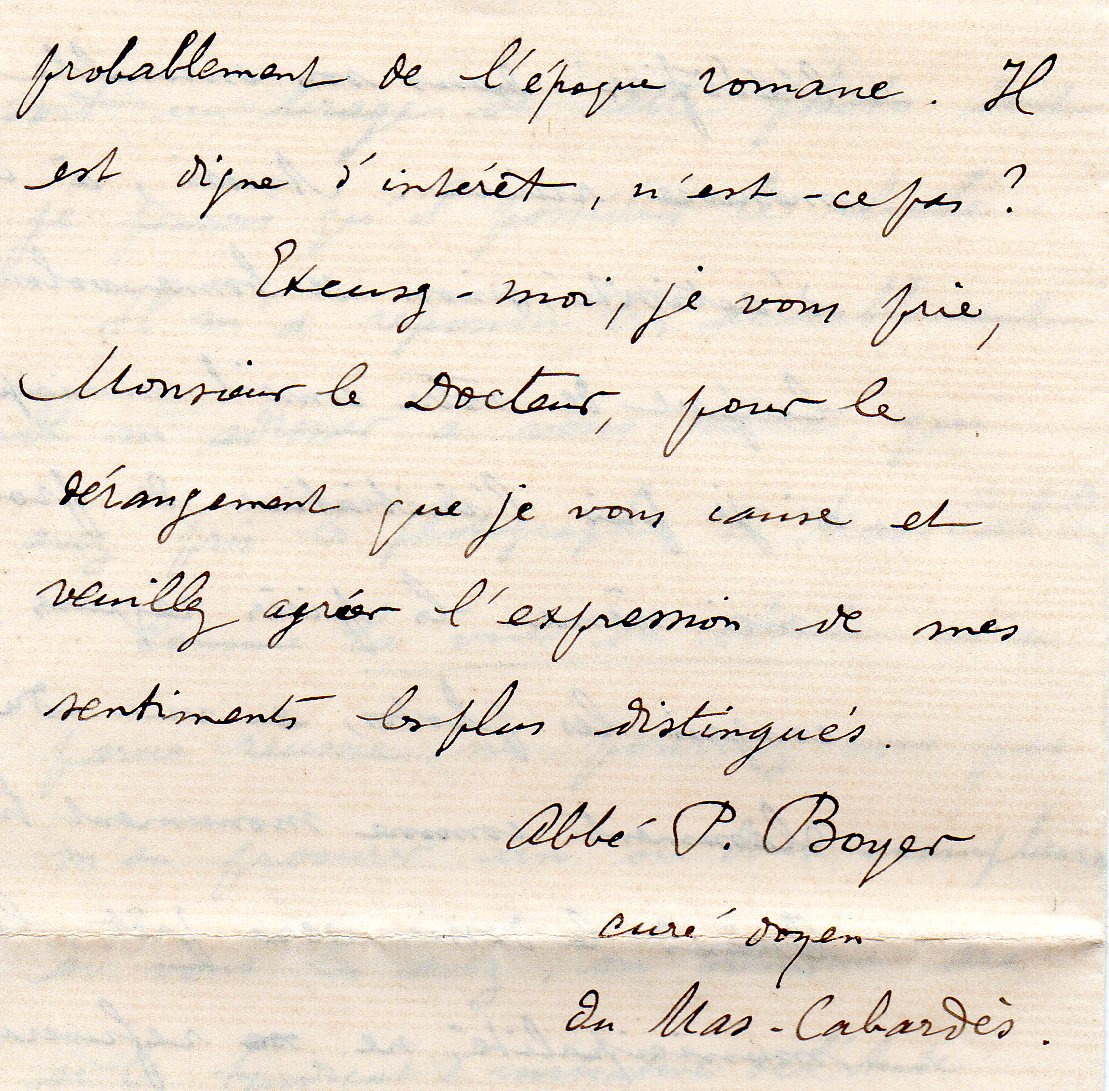 probablement de l'époque romane. Il
est digne d'intérêt, n'est-ce pas ?
Excusez-moi, je vous prie,
Monsieur le Docteur, pour le
dérangement que je vous cause et
veuillez agréer l'expression de mes
sentiments les plus distingués.
Abbé P. Boyer
curé doyen
du Mas-Cabardès.